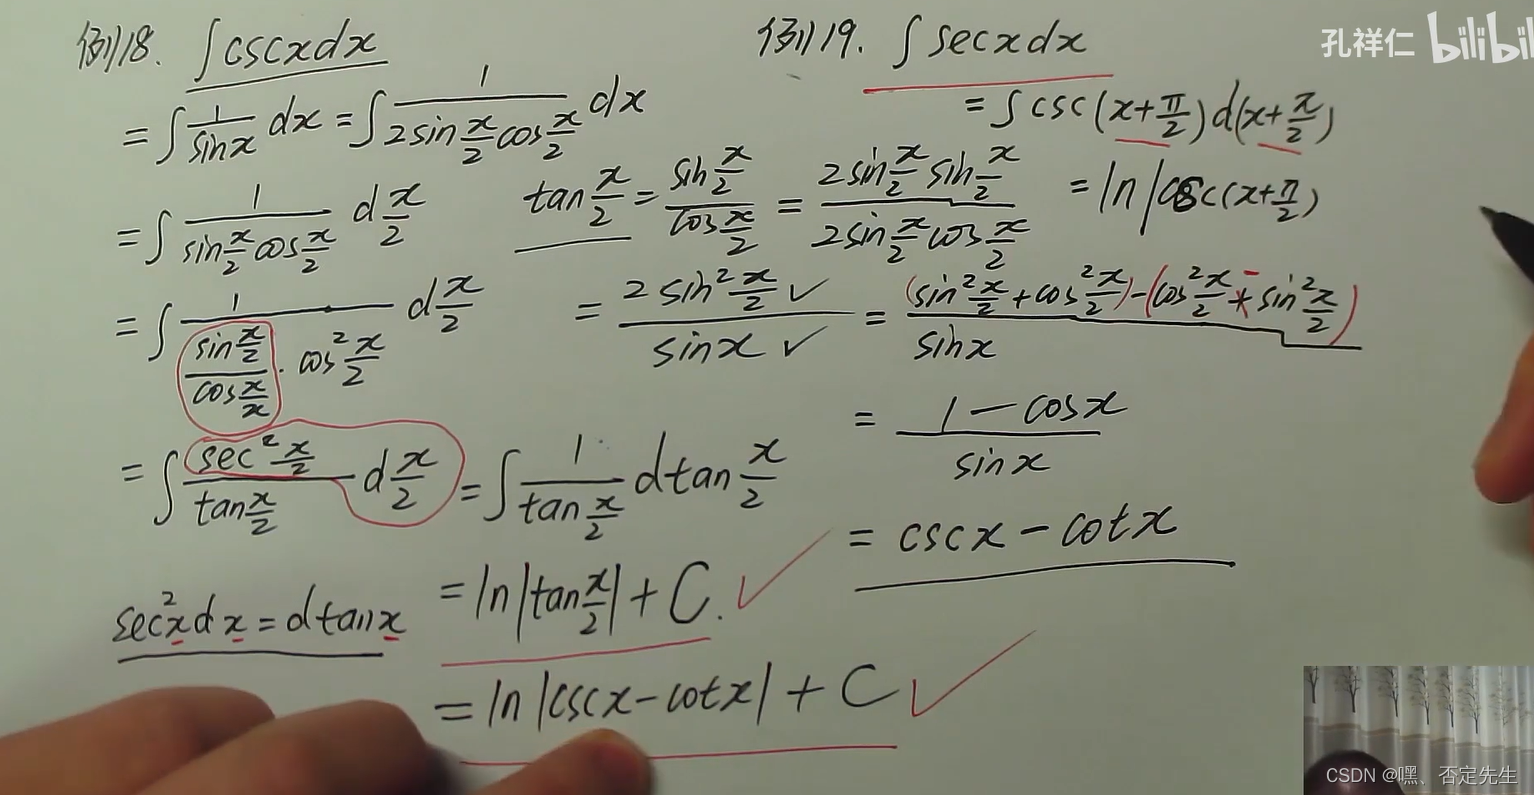 例18. ∫cscxdx
= ∫ 1/sinx dx = ∫ 1/(2sin x/2 cos x/2) dx
= ∫ 1/(sin x/2 cos x/2) d x/2
= ∫ 1/((sin x/2)/(cos x/x) · cos² x/2) d x/2
= ∫ (sec² x/2)/(tan x/2) d x/2 = ∫ 1/(tan x/2) dtan x/2
= ln|tan x/2| + C. ✓
= ln|cscx-cotx| + C ✓
sec²xdx = dtanx
tan x/2 = (sin x/2)/(cos x/2) = (2sin x/2 sin x/2)/(2sin x/2 cos x/2)
= (2sin² x/2 ✓)/(sinx ✓) = ((sin² x/2 + cos² x/2) - (cos² x/2 - sin² x/2))/sinx
= (1 - cosx)/sinx
= cscx - cotx
例19. ∫secxdx
= ∫csc(x+π/2)d(x+π/2)
= ln|csc(x+π/2)
孔祥仁 bilibil
CSDN @嘿、否定先生